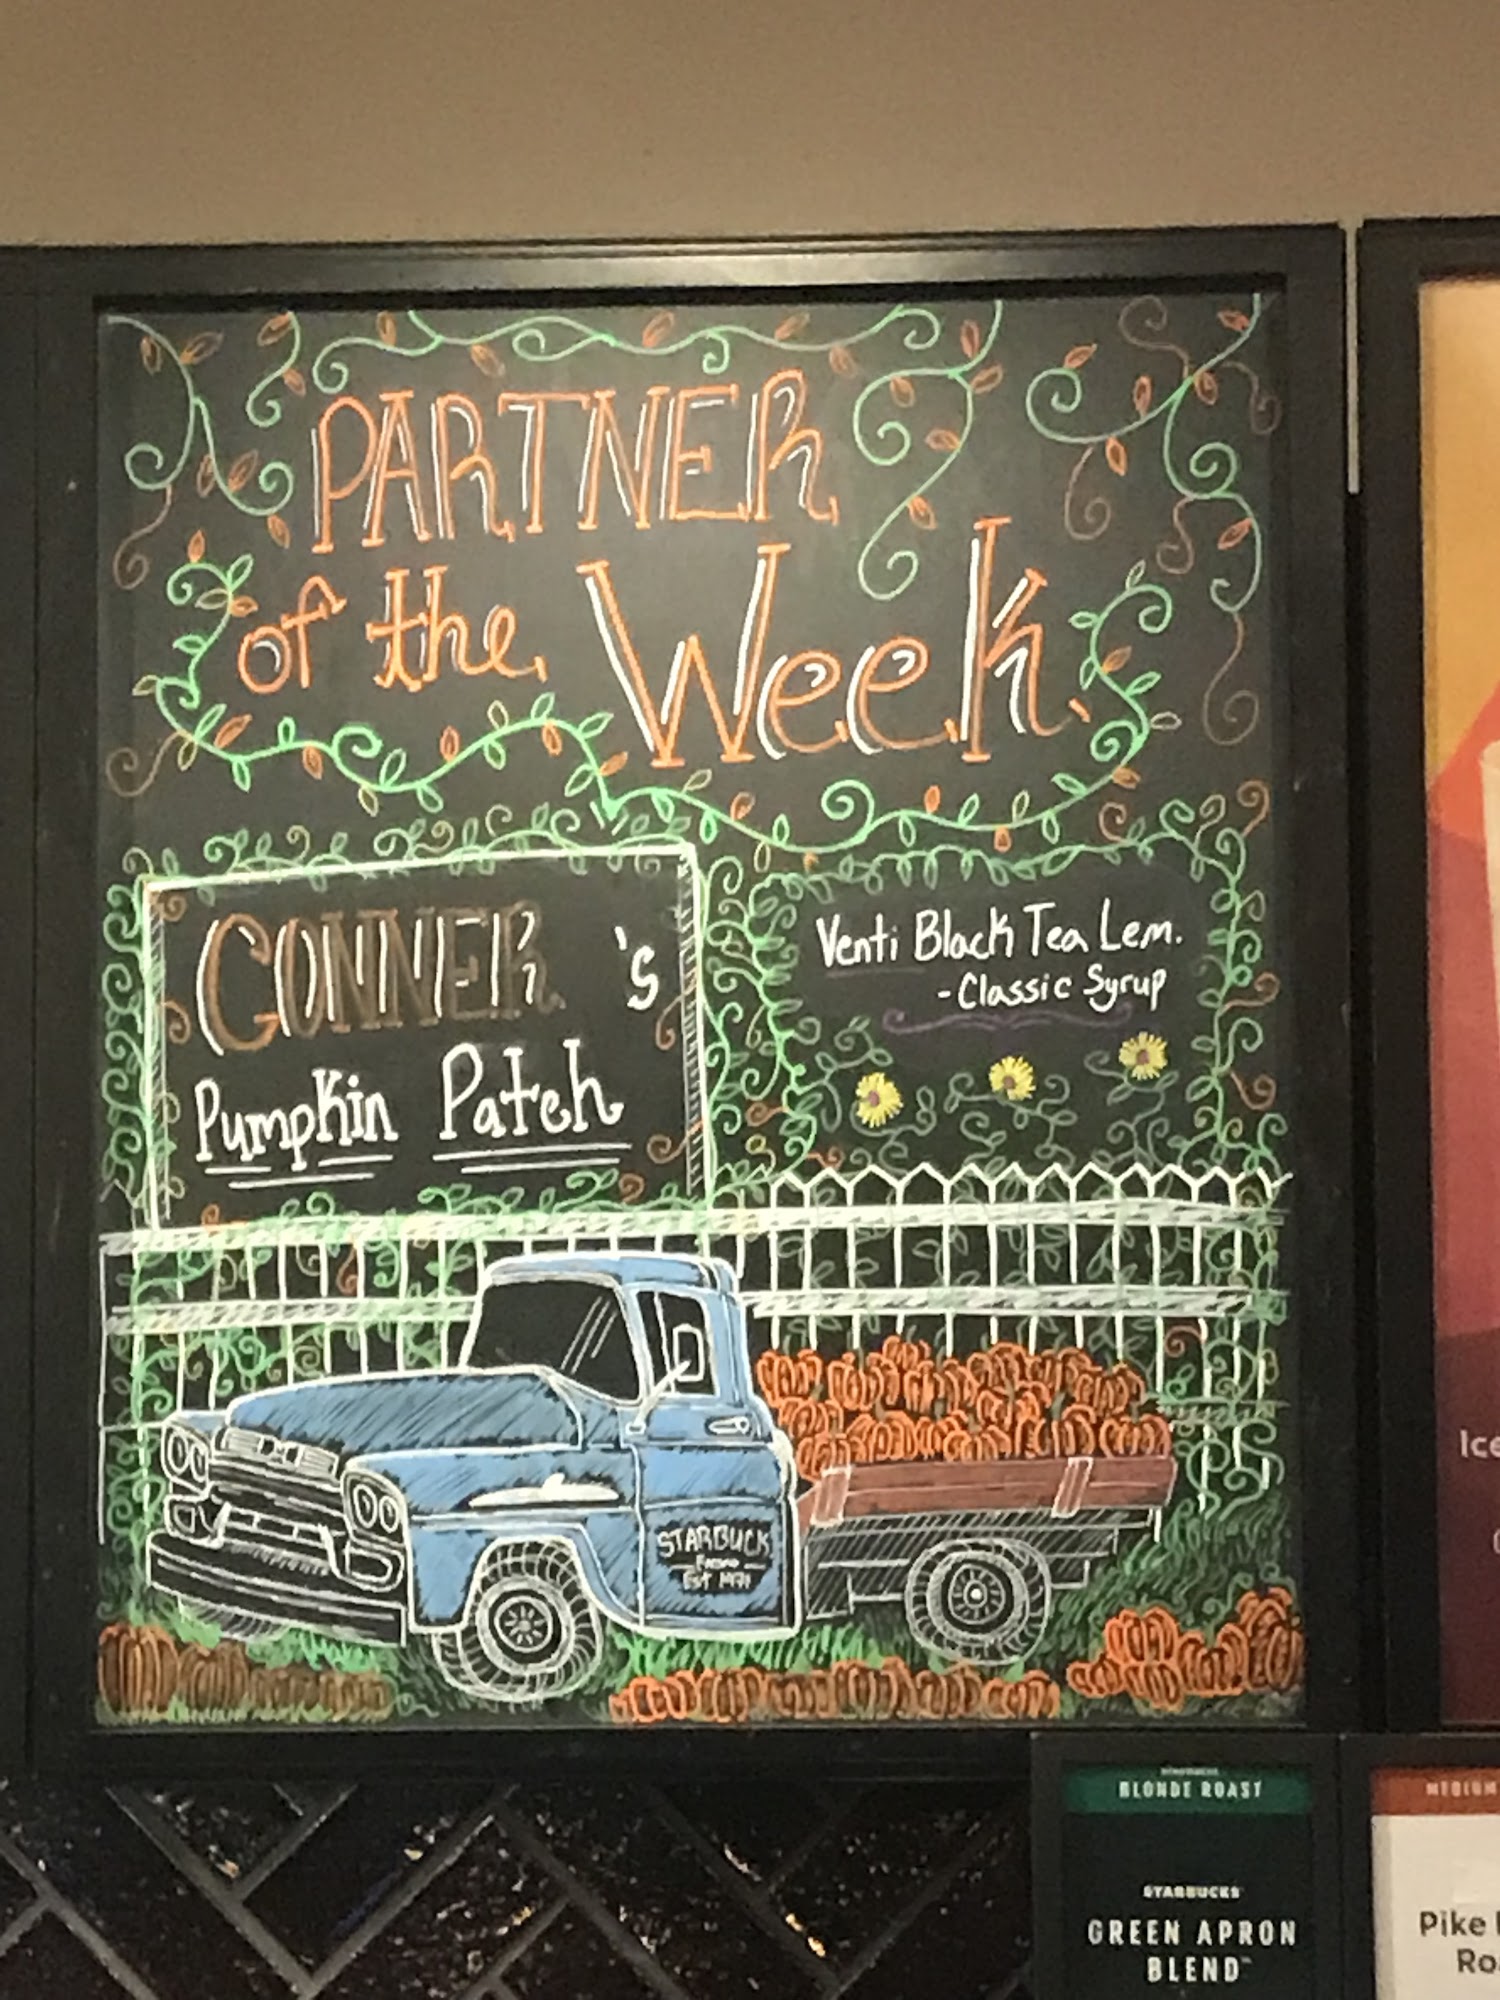 PARTNER
of the Week
CONNER 's
Pumpkin Patch
Venti Black Tea Lem.
- Classic Syrup
STARBUCK
Fresno
Est 1971
Ice
BLONDE ROAST
STARBUCKS
GREEN APRON
BLEND™
MEDIUM
Pike
Ro